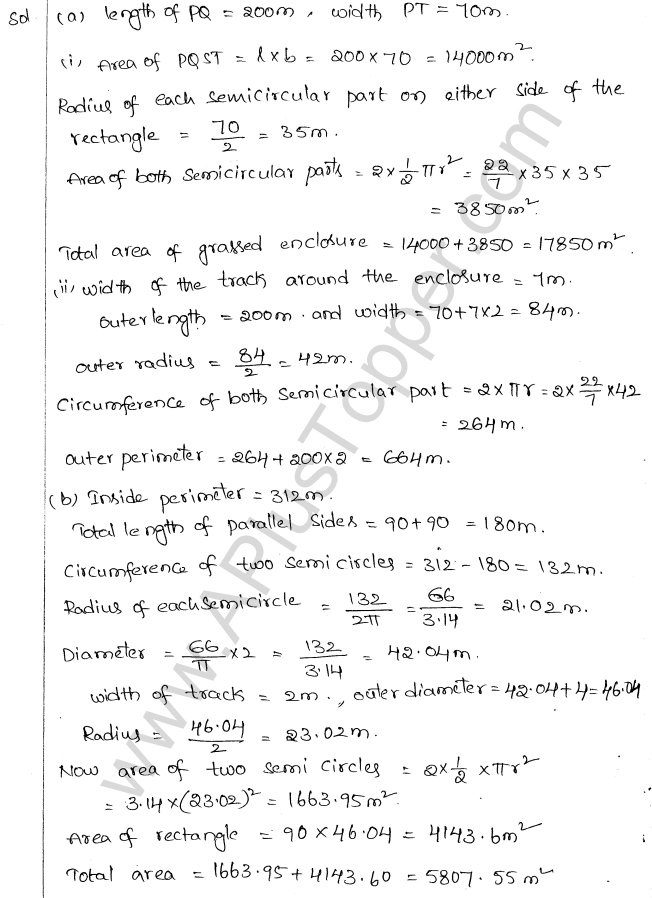 Sol (a) length of PQ = 200m, width PT = 70m.
(i) Area of PQST = l×b = 200×70 = 14000m².
Radius of each semicircular part on either side of the
rectangle = 70/2 = 35m.
Area of both semicircular parts = 2×1/2 πr² = 22/7 ×35×35
= 3850m².
Total area of grassed enclosure = 14000+3850 = 17850m².
(ii) width of the track around the enclosure = 7m.
outer length = 200m. and width = 70+7×2 = 84m.
outer radius = 84/2 = 42m.
Circumference of both semicircular part = 2×πr = 2×22/7×42
= 264m.
outer perimeter = 264+200×2 = 664m.
(b) Inside perimeter = 312m.
Total length of parallel sides = 90+90 = 180m.
Circumference of two semi circles = 312-180 = 132m.
Radius of each semicircle = 132/2π = 66/3.14 = 21.02m.
Diameter = 66/π ×2 = 132/3.14 = 42.04m.
width of track = 2m., outer diameter = 42.04+4 = 46.04
Radius = 46.04/2 = 23.02m.
Now area of two semi circles = 2×1/2 ×πr²
= 3.14×(23.02)² = 1663.95m².
Area of rectangle = 90×46.04 = 4143.6m²
Total area = 1663.95+4143.60 = 5807.55m²
www.APlusTopper.com